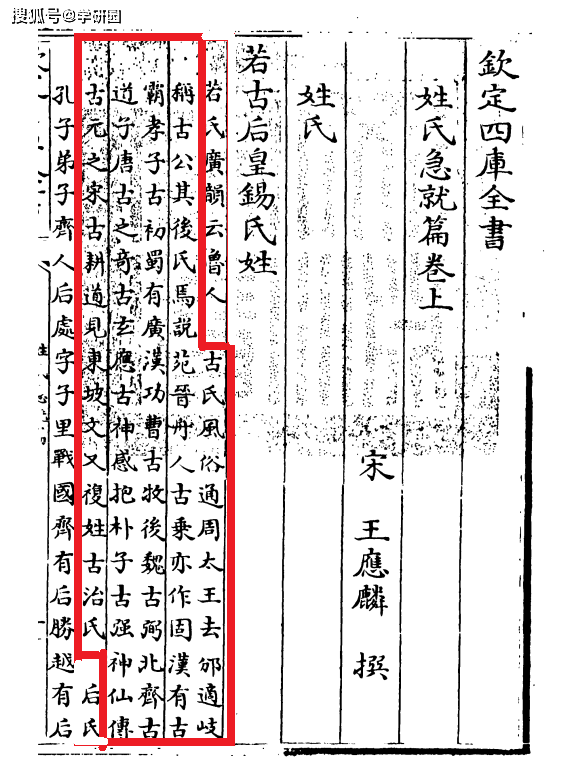 搜狐号@学研园
欽定四庫全書
姓氏急就篇卷上
宋 王應麟 撰
姓氏
若古后皇錫氏姓
若氏廣韻云魯人 古氏風俗通周太王去邠適岐
稱古公其後氏焉説苑晉舟人古乗亦作固漢有古
霸孝子古初蜀有廣漢功曹古牧後魏古弼北齊古
道子唐古之竒古玄應古神感抱朴子古强神仙傳
古元之宋古耕道見東坡文又復姓古冶氏 后氏
孔子弟子齊人后處字子里戰國齊有后勝越有后